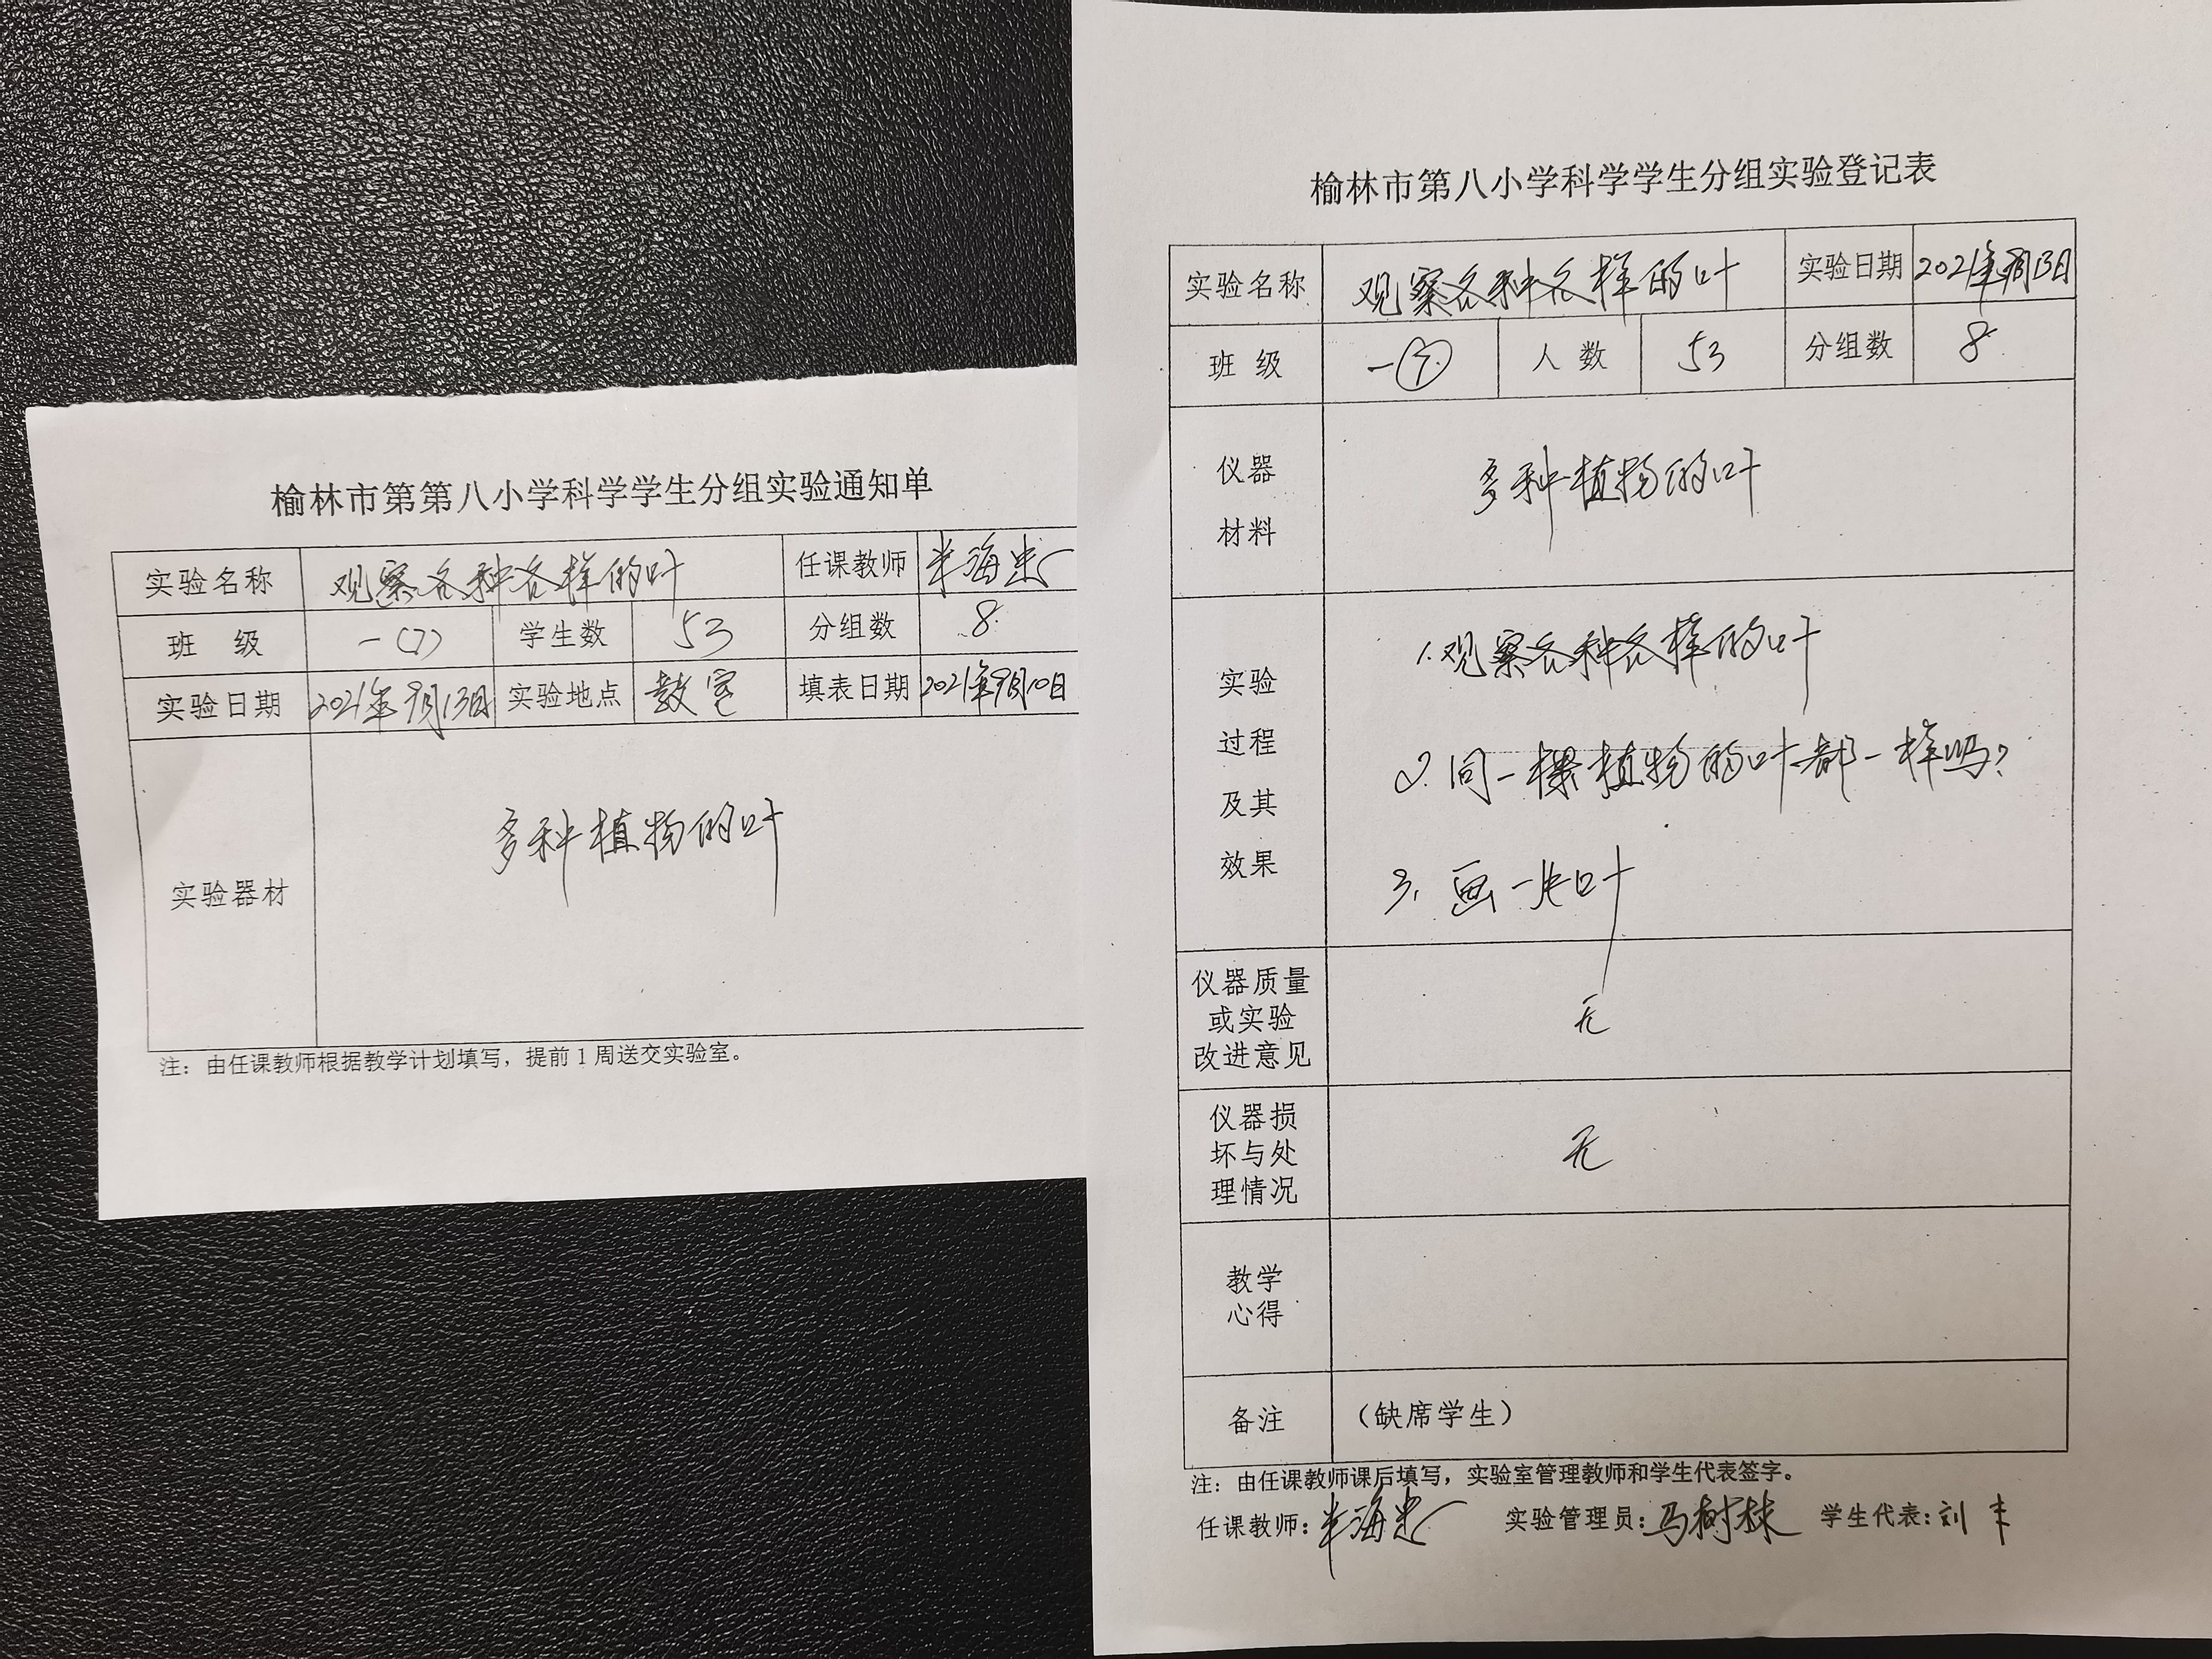 榆林市第第八小学科学学生分组实验通知单
实验名称 观察各种各样的叶 任课教师 海忠
班 级 一(7) 学生数 53 分组数 8
实验日期 2021年9月13日 实验地点 教室 填表日期 2021年9月10日
实验器材 多种植物的叶
注：由任课教师根据教学计划填写，提前1周送交实验室。
榆林市第八小学科学学生分组实验登记表
实验名称 观察各种各样的叶 实验日期 2021年9月13日
班 级 一⑦ 人 数 53 分组数 8
仪器
材料
多种植物的叶
实验
过程
及其
效果
1.观察各种各样的叶
2.同一棵植物的叶都一样吗?
3.画一片叶
仪器质量
或实验
改进意见
无
仪器损
坏与处
理情况
无
教学
心得
备注 （缺席学生）
注：由任课教师课后填写，实验室管理教师和学生代表签字。
任课教师：海忠 实验管理员：马树林 学生代表：刘